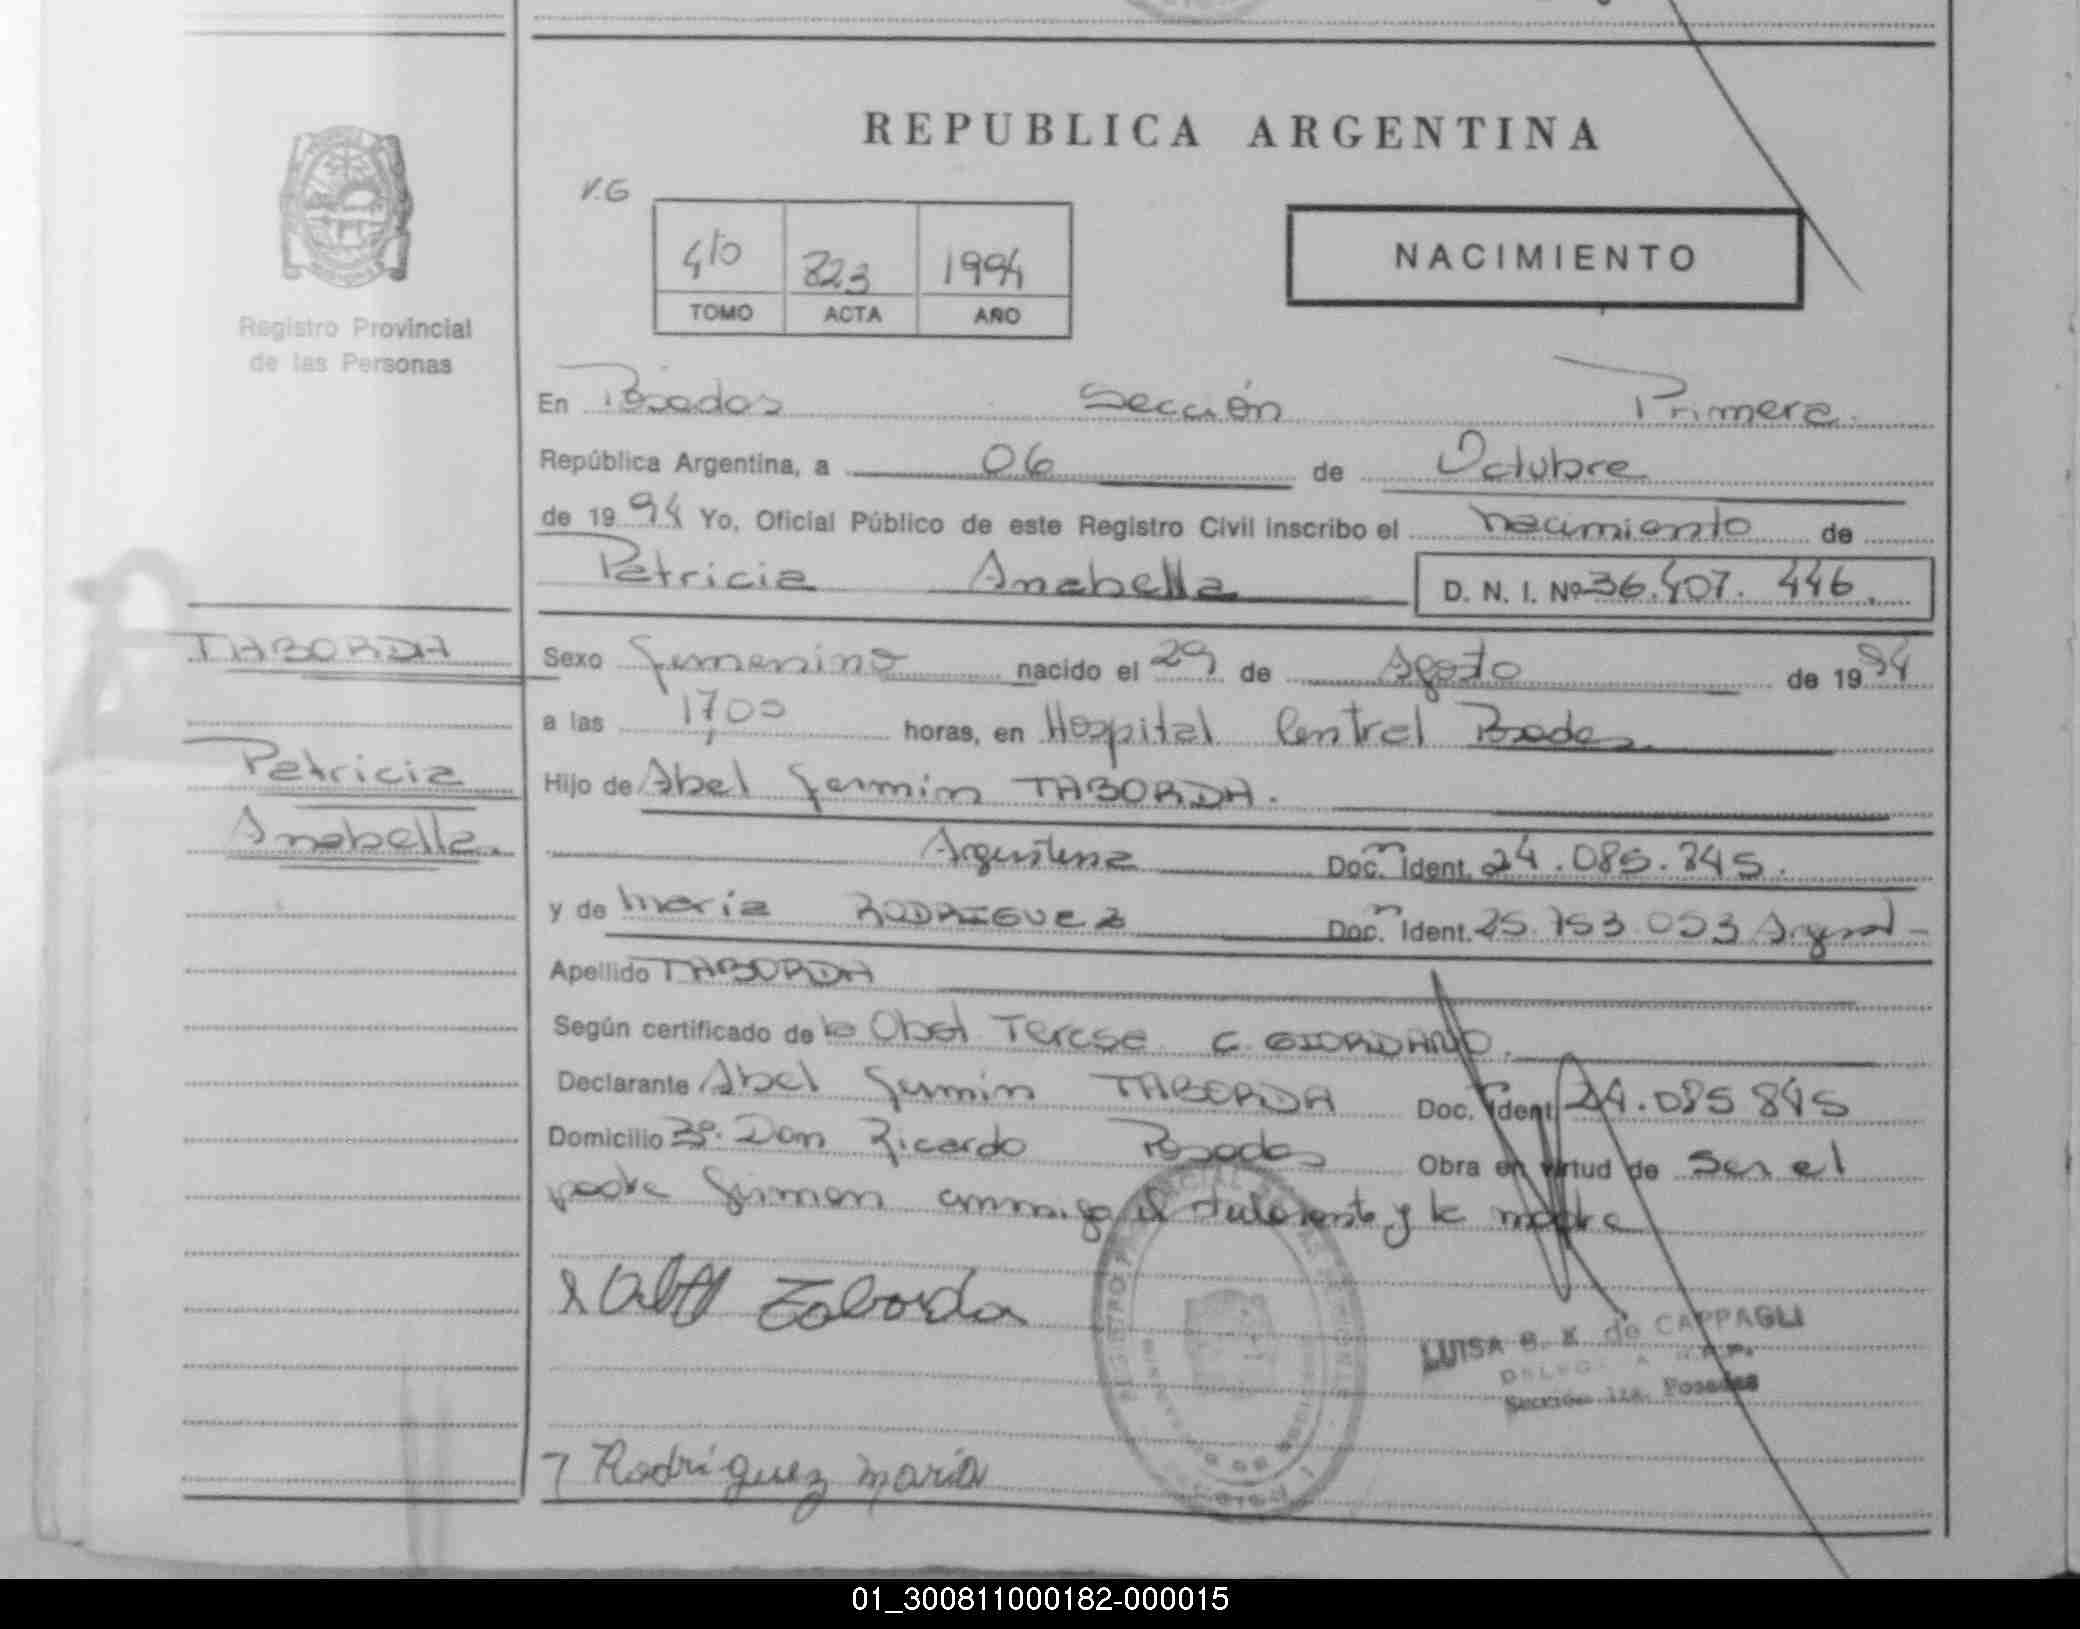 REPUBLICA ARGENTINA
V.G
410 823 1994
TOMO ACTA AÑO
NACIMIENTO
Registro Provincial
de las Personas
En Posadas Sección Primera
República Argentina, a 06 de Octubre
de 1994 Yo, Oficial Público de este Registro Civil inscribo el nacimiento de
Patricia Anabella D. N. I. Nº 36.407.446.
TABORDA
Patricia
Anabella.
Sexo femenino nacido el 29 de Agosto de 1994
a las 17,00 horas, en Hospital Central Posadas.
Hijo de Abel Fermin TABORDA.
Argentina Doc. Ident. 24.085.845.
y de Maria RODRIGUEZ Doc. Ident. 25.753.053
Apellido TABORDA
Según certificado de la Obst Teresa C. GIORDANO.
Declarante Abel Fermin TABORDA Doc. Ident. 24.085 845
Domicilio Bº. Don Ricardo Posadas Obra en virtud de Ser el
padre firman conmigo el declarante y la madre
Taborda
LUISA B. K de CAPPAGLI
Sección 1ra. Posadas
Rodriguez maria
01_300811000182-000015